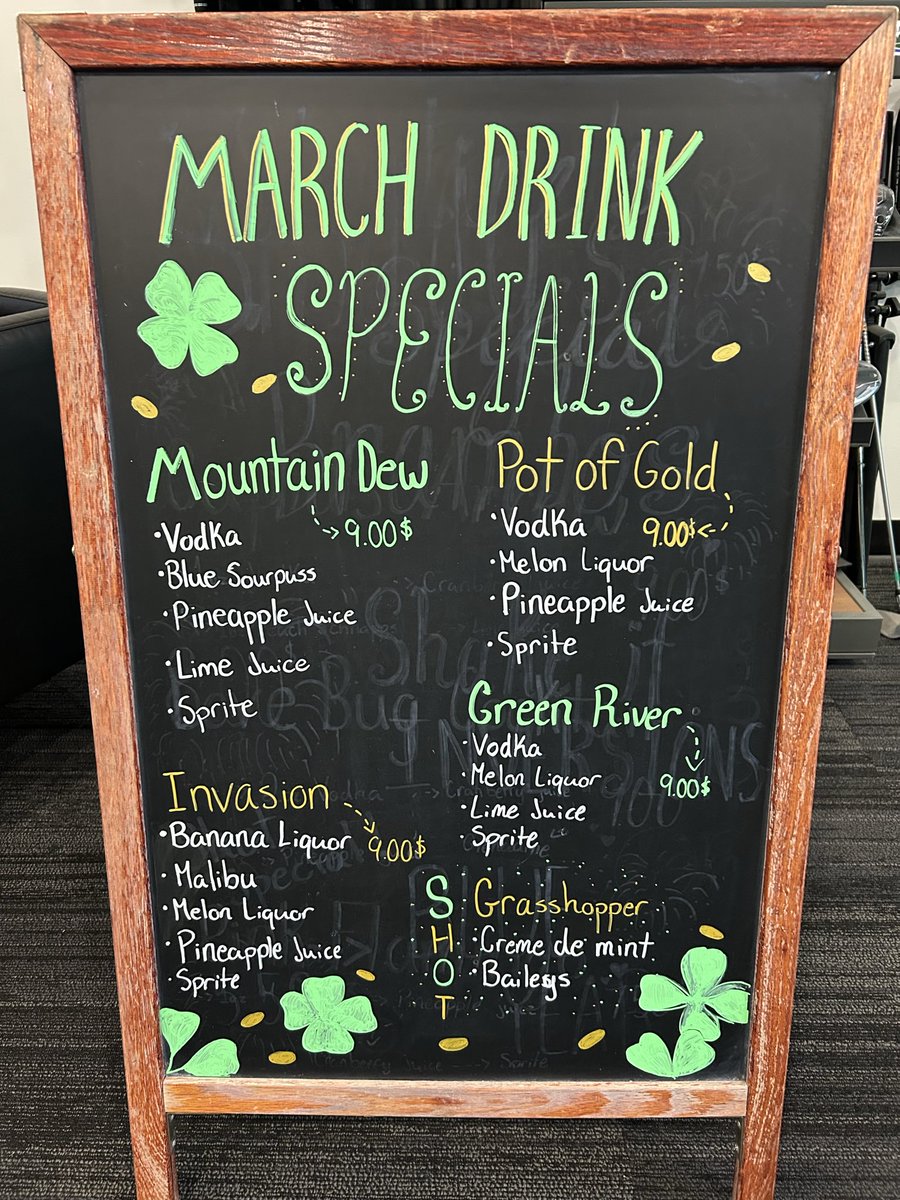 MARCH DRINK
SPECIALS
Mountain Dew
9.00$
•Vodka
•Blue Sourpuss
•Pineapple Juice
•Lime Juice
•Sprite
Pot of Gold
•Vodka 9.00$
•Melon Liquor
•Pineapple Juice
•Sprite
Invasion
•Banana Liquor 9.00$
•Malibu
•Melon Liquor
•Pineapple Juice
•Sprite
Green River
•Vodka
•Melon Liquor 9.00$
•Lime Juice
•Sprite
SHOT
Grasshopper
•Creme de mint
•Baileys